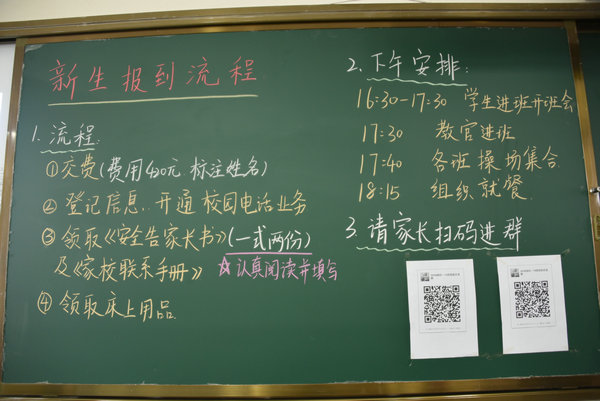 新生报到流程
1.流程:
①交费(费用420元 标注姓名)
②登记信息、开通校园电话业务
③领取《安全告家长书》(一式两份)
及《家校联系手册》 ☆认真阅读并填写
④领取床上用品
2.下午安排:
16:30-17:30 学生进班开班会
17:30 教官进班
17:40 各班操场集合
18:15 组织就餐
3.请家长扫码进群